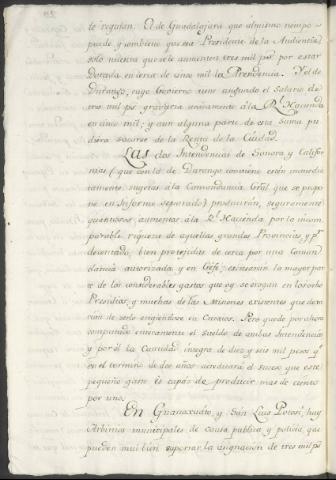 te regulan. El de Guadalajara que al mismo tiempo
puede, y conbiene que sea Presidente de la Audiencia
solo nuenta que se le aumenten tres mil ps por estar
Dotada en seis de cinco mil la Precidencia. Y el de
Durango, cuyo Govierno tiene asignado el salario de
tres mil ps gravaria unicamente á la Rl Hacienda
en cinco mil; y aun alguna parte de esta suma pu
diera sacarse de la Renta de la Ciudad.
Las dos Intendencias de Sonora y Califor
nias (que con la de Durango conviene esten inmedia
tamente sugetas á la Comandancia Gral que se propo
ne en Informe separado) producirán, seguramente
quantiosos aumentos á la Rl Hacienda, por la incom
parable riqueza de aquellas grandes Provincias, y pr
descontado, bien protejidas de cerca por una Coman
dancia autorizada, y en Gefe, escusarán la mayor par
te de los considerables gastos que oy se erogan en los ocho
Presidios, y muchas de las Misiones existentes que deve
rán de serlo erigiendose en Curatos. Pero quede por ahora
computado enteramente el sueldo de ambas Intendencias
y por él la Cantidad integra de diez y seis mil pesos qe
en el termino de dos años acreditará el suceso que este
pequeño gasto és capáz de producir mas de ciento
por uno.
En Guanaxuato, y San Luis Potosi, hay
Arbitrios municipales de causa publica y policia que
pueden mui bien suportar la asignación de tres mil ps